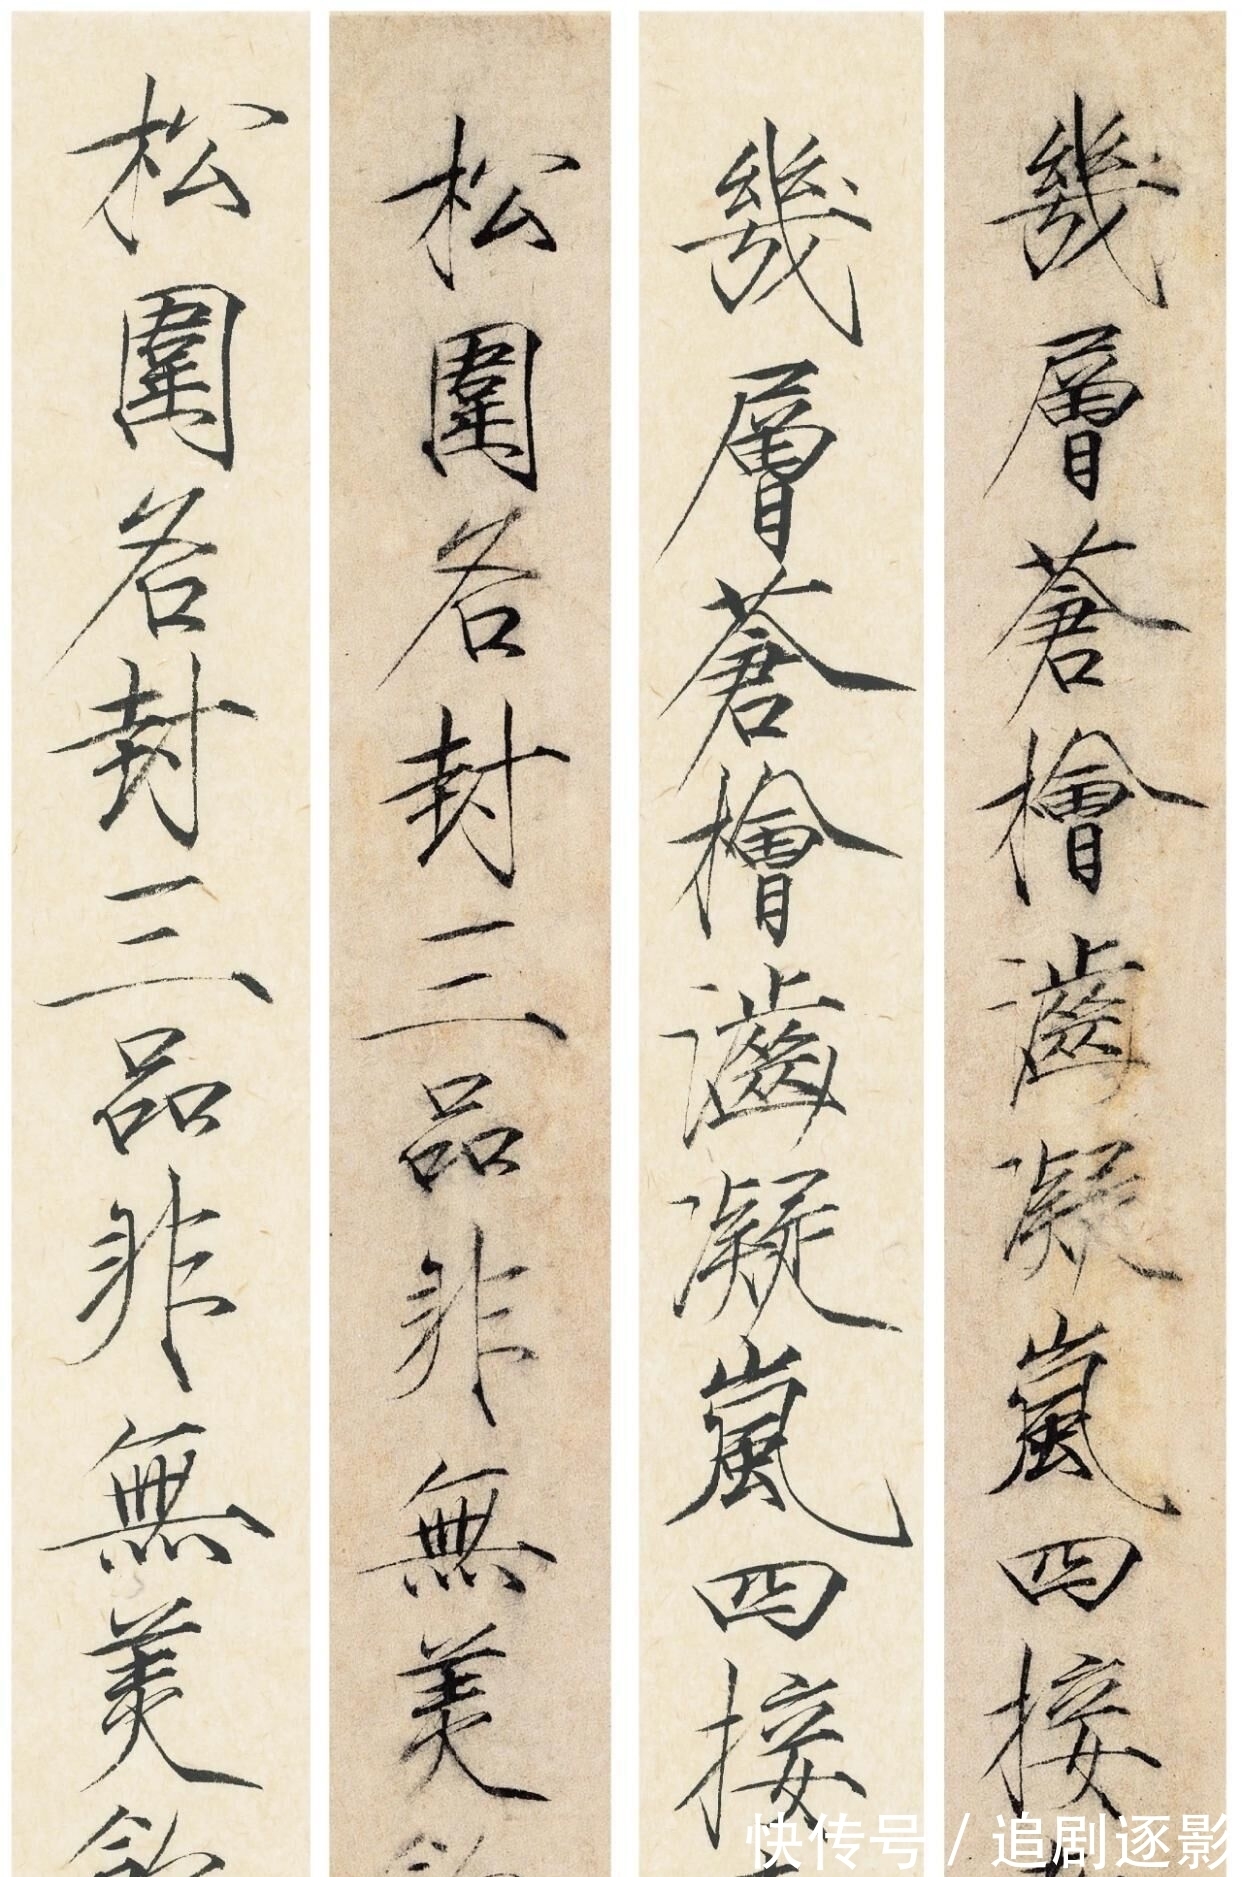 幾層蒼檜澁凝嵐四接
幾層蒼檜澁凝嵐四接
松圍各封三品非無美
松圍各封三品非無美
快传号 / 追剧逐影